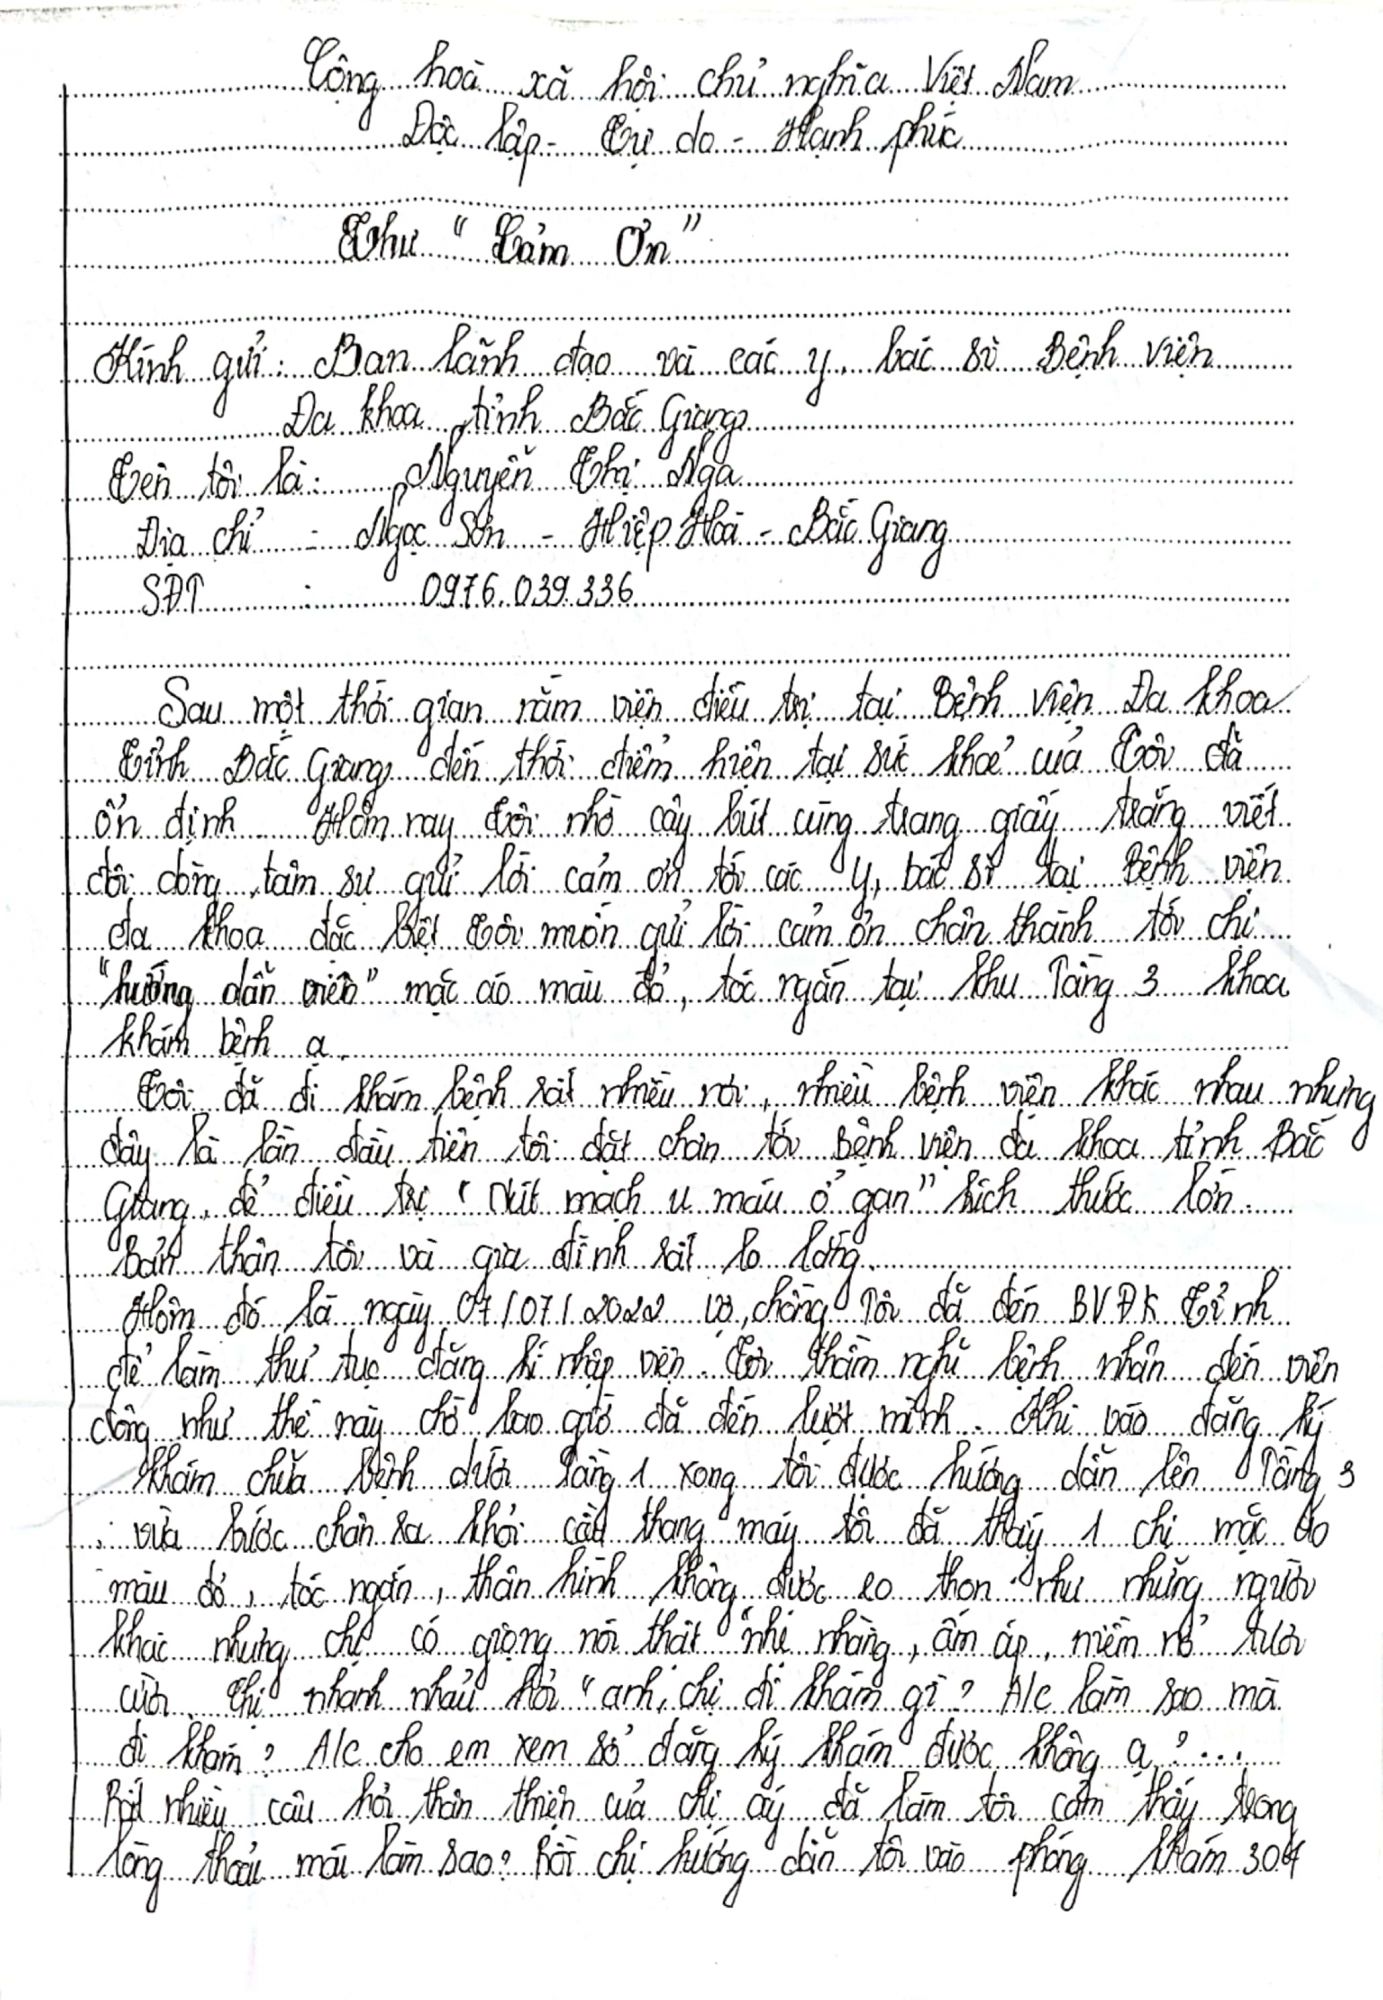 Cộng hoà xã hội chủ nghĩa Việt Nam
Độc lập - Tự do - Hạnh phúc
Thư "Cảm Ơn"
Kính gửi: Ban lãnh đạo và các y, bác sĩ Bệnh viện
Đa khoa tỉnh Bắc Giang
Tên tôi là: Nguyễn Thị Nga
Địa chỉ : Ngọc Sơn - Hiệp Hoà - Bắc Giang
SĐT : 0976.039.336
Sau một thời gian nằm viện điều trị tại Bệnh Viện Đa khoa
Tỉnh Bắc Giang đến thời điểm hiện tại sức khoẻ của Tôi đã
ổn định Hôm nay Tôi nhờ cây bút cùng trang giấy trắng viết
đôi dòng tâm sự gửi lời cảm ơn tới các y, bác sĩ tại Bệnh viện
đa khoa đặc biệt Tôi muốn gửi lời cảm ơn chân thành tới chị
"hướng dẫn viên" mặc áo màu đỏ, tóc ngắn tại khu Tầng 3 khoa
khám bệnh ạ.
Tôi đã đi khám bệnh rất nhiều nơi, nhiều bệnh viện khác nhau nhưng
đây là lần đầu tiên tôi đặt chân tới Bệnh viện đa khoa tỉnh Bắc
Giang, để điều trị "Nút mạch u máu ở gan" kích thước lớn.
Bản thân tôi và gia đình rất lo lắng.
Hôm đó là ngày 07/07/2022 vợ, chồng Tôi đã đến BVĐK Tỉnh
để làm thủ tục đăng kí nhập viện. Tôi thầm nghĩ bệnh nhân đến viện
đông như thế này chờ bao giờ đã đến lượt mình. Khi vào đăng ký
khám chữa bệnh dưới Tầng 1 xong tôi được hướng dẫn lên Tầng 3
, vừa bước chân ra khỏi cầu thang máy tôi đã thấy 1 chị mặc áo
màu đỏ, tóc ngắn, thân hình không được eo thon như những người
khác nhưng chị có giọng nói thật nhẹ nhàng, ấm áp, niềm nở tươi
cười. Chị nhanh nhảu hỏi "anh, chị đi khám gì? A/c làm sao mà
đi khám? A/c cho em xem sổ đăng ký khám được không ạ?...
Rất nhiều câu hỏi thân thiện của chị ấy đã làm tôi cảm thấy trong
lòng thoải mái làm sao? Rồi chị hướng dẫn tôi vào phòng khám 304